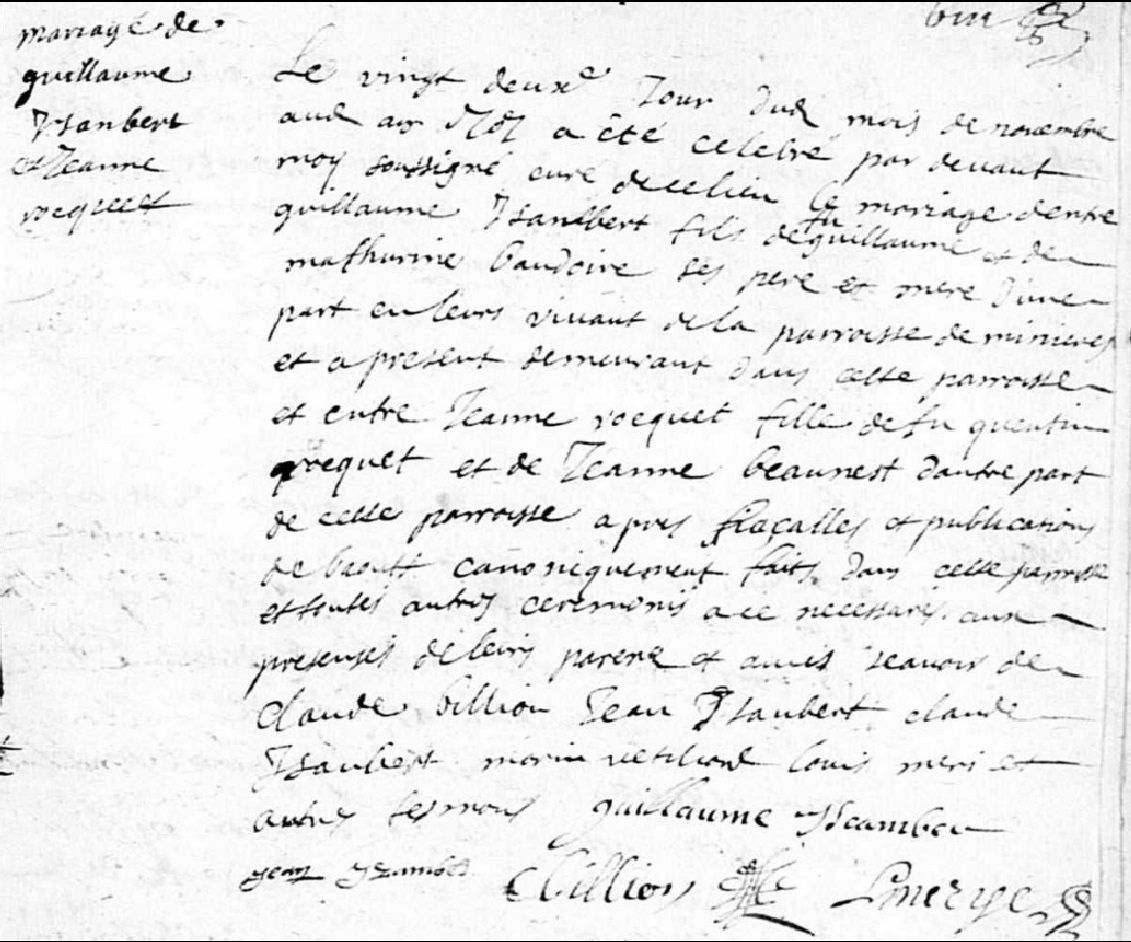 mariage de
guillaume
Ysanbert
et Jeanne
rocquet
Le vingt deuxe Jour dud mois de novembre
aud an a été celebré par devant
moy soussigné curé de ce lieu le mariage dentre
guillaume Ysanbert fils de fu guillaume et de
mathurine baudoire ses pere et mere dune
part en leurs vivant de la parroisse de
et a present demeurant dans cette parroisse
et entre Jeanne rocquet fille de fu quentin
rocquet et de Jeanne beaunest dautre part
de cette parroisse apres fiaçalles et publications
de canoniquement faits dans cette parroisse
et toutes autres ceremonis a ce necessaris aux
presenses de leurs parens et amis scavoir de
claude billion Jean Ysanbert claude
Ysanbert marin louis meri et
autres temoins guillaume
jean Cbillion Lmerye